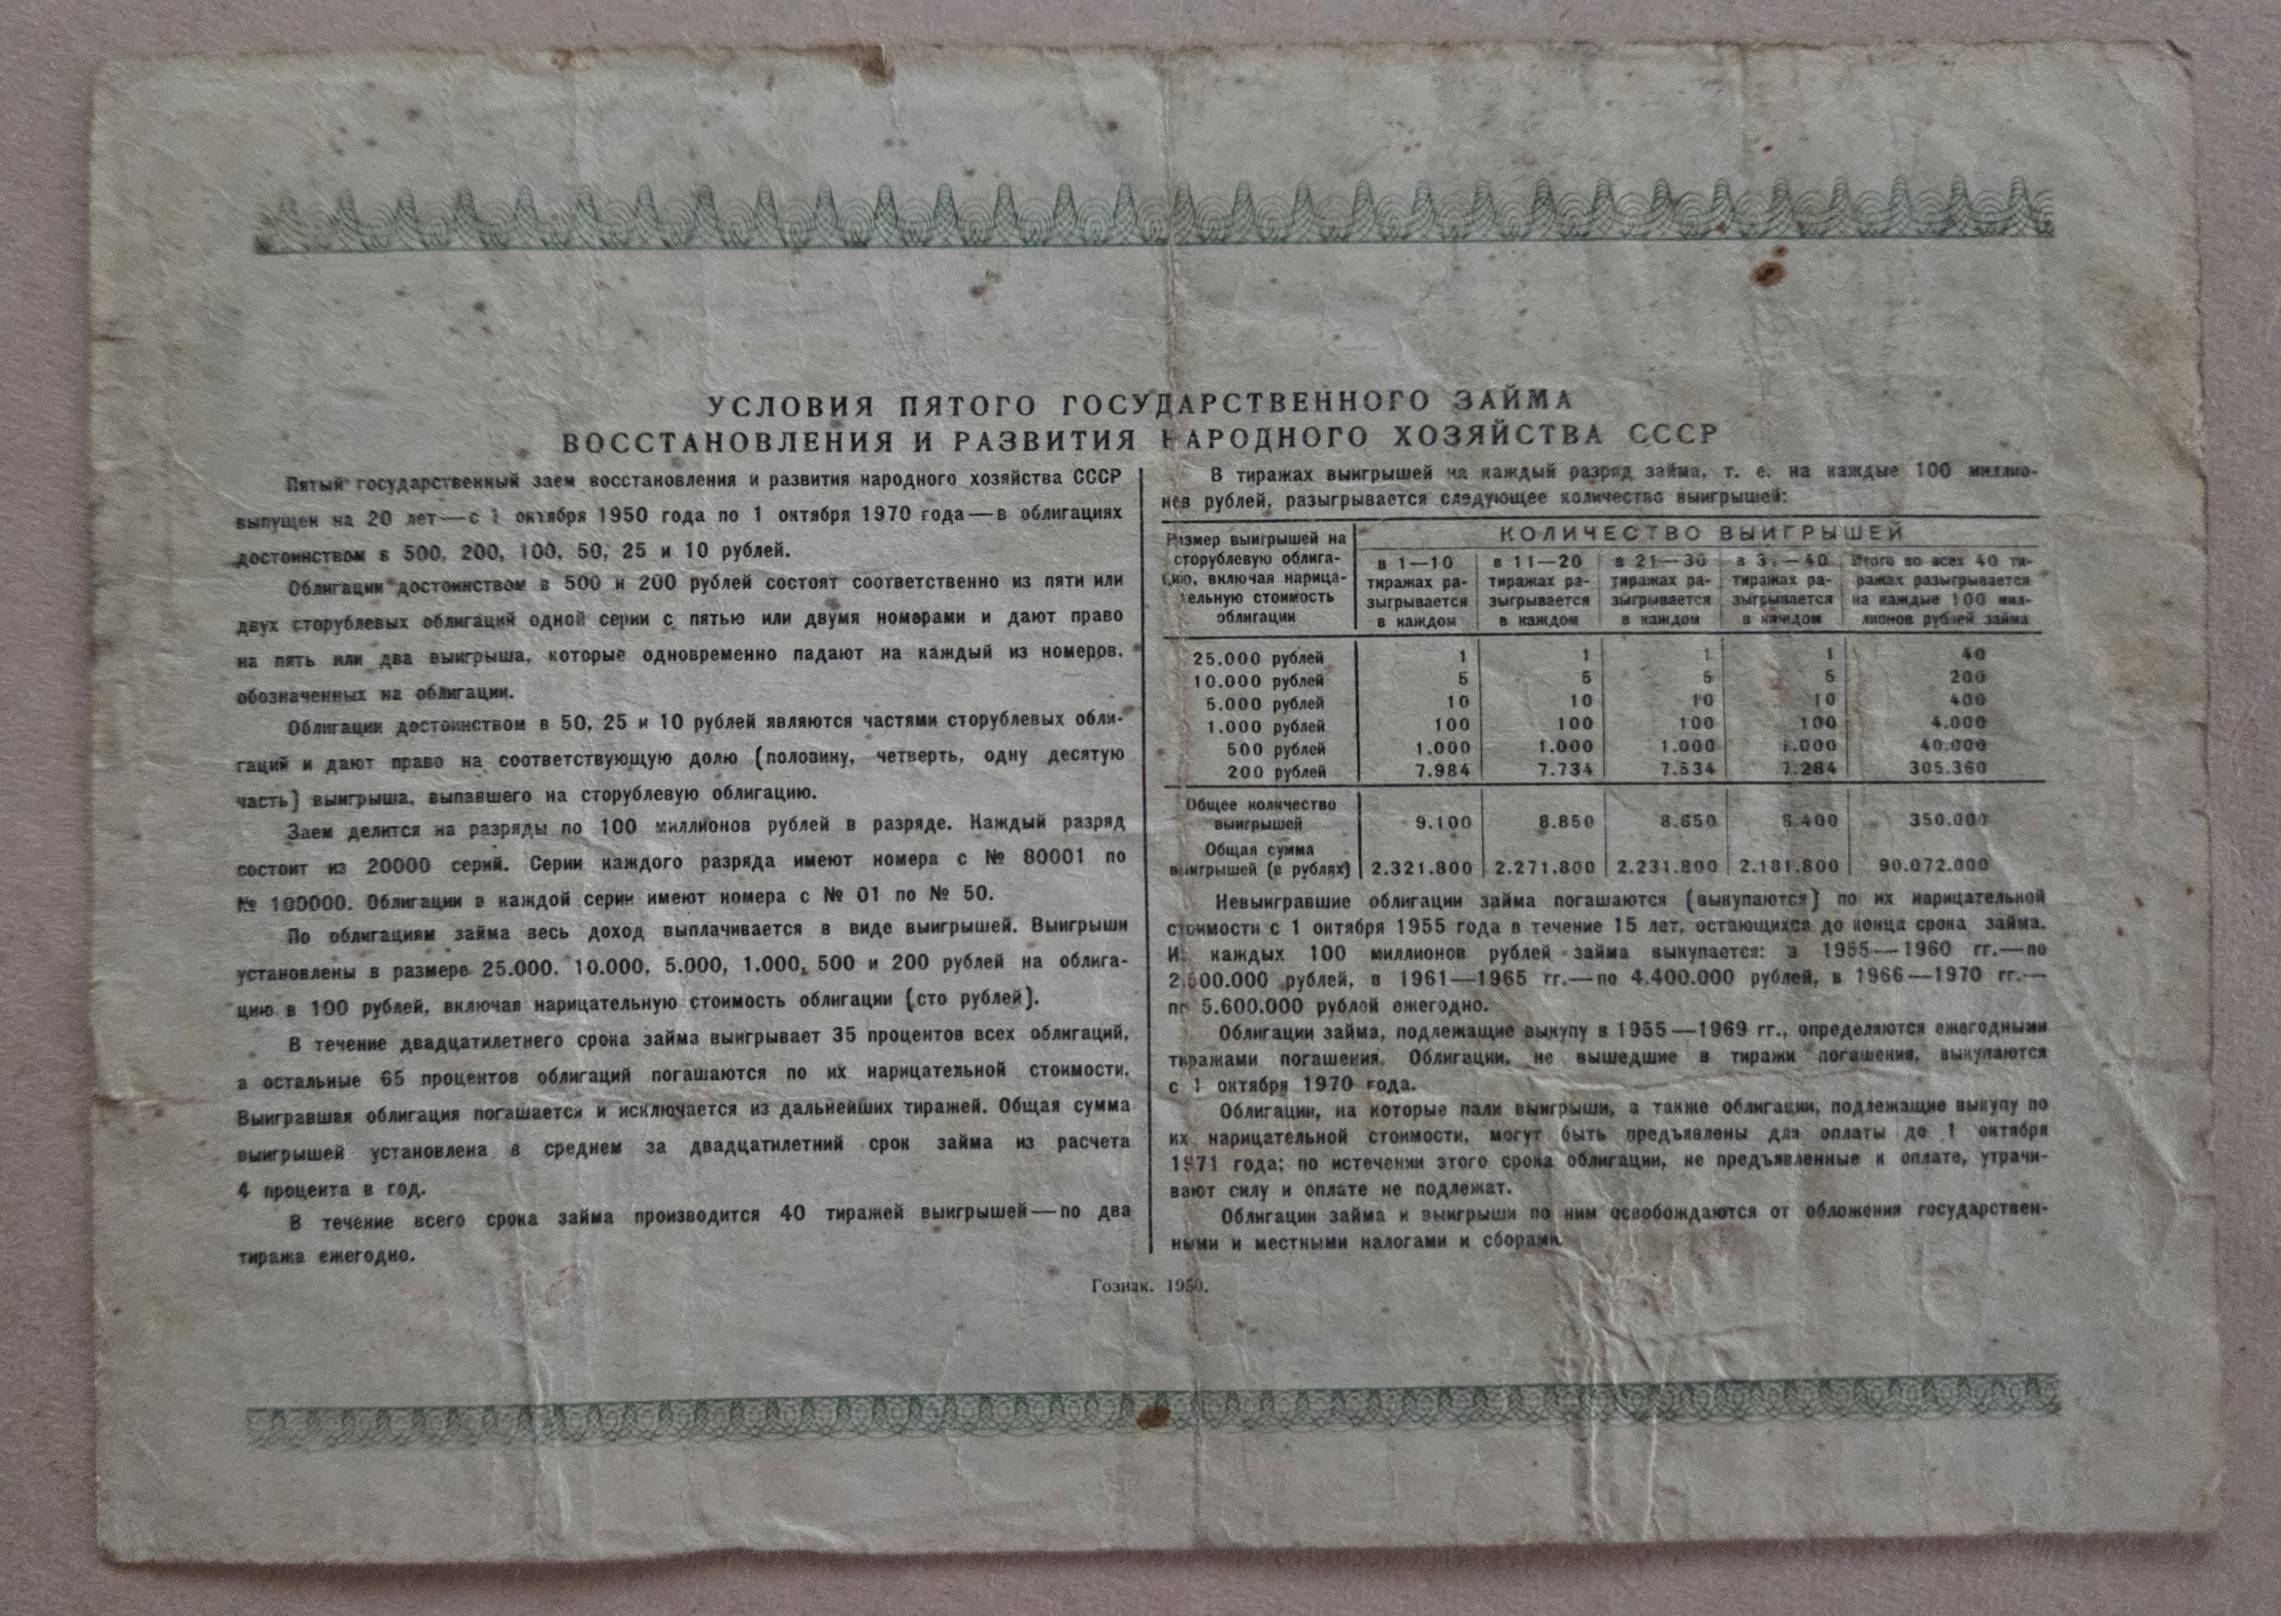 УСЛОВИЯ ПЯТОГО ГОСУДАРСТВЕННОГО ЗАЙМА
ВОССТАНОВЛЕНИЯ И РАЗВИТИЯ НАРОДНОГО ХОЗЯЙСТВА СССР
Пятый государственный заем восстановления и развития народного хозяйства СССР
выпущен на 20 лет—с 1 октября 1950 года по 1 октября 1970 года—в облигациях
достоинством в 500, 200, 100, 50, 25 и 10 рублей.
Облигации достоинством в 500 и 200 рублей состоят соответственно из пяти или
двух сторублевых облигаций одной серии с пятью или двумя номерами и дают право
на пять или два выигрыша, которые одновременно падают на каждый из номеров,
обозначенных на облигации.
Облигации достоинством в 50, 25 и 10 рублей являются частями сторублевых обли-
гаций и дают право на соответствующую долю (половину, четверть, одну десятую
часть) выигрыша, выпавшего на сторублевую облигацию.
Заем делится на разряды по 100 миллионов рублей в разряде. Каждый разряд
состоит из 20000 серий. Серии каждого разряда имеют номера с № 80001 по
№ 100000. Облигации в каждой серии имеют номера с № 01 по № 50.
По облигациям займа весь доход выплачивается в виде выигрышей. Выигрыши
установлены в размере 25.000, 10.000, 5.000, 1.000, 500 и 200 рублей на облига-
цию в 100 рублей, включая нарицательную стоимость облигации (сто рублей).
В течение двадцатилетнего срока займа выигрывает 35 процентов всех облигаций,
а остальные 65 процентов облигаций погашаются по их нарицательной стоимости.
Выигравшая облигация погашается и исключается из дальнейших тиражей. Общая сумма
выигрышей установлена в среднем за двадцатилетний срок займа из расчета
4 процента в год.
В течение всего срока займа производится 40 тиражей выигрышей—по два
тиража ежегодно.
В тиражах выигрышей на каждый разряд займа, т. е. на каждые 100 миллио-
нов рублей, разыгрывается следующее количество выигрышей:
Размер выигрышей на
сторублевую облига-
цию, включая нарица-
тельную стоимость
облигации
КОЛИЧЕСТВО ВЫИГРЫШЕЙ
в 1—10 в 11—20 в 21—30 в 31—40 Итого во всех 40 ти-
тиражах ра- тиражах ра- тиражах ра- тиражах ра- ражах разыгрывается
зыгрывается зыгрывается зыгрывается зыгрывается на каждые 100 мил-
в каждом в каждом в каждом в каждом лионов рублей займа
25.000 рублей 1 1 1 1 40
10.000 рублей 5 5 5 5 200
5.000 рублей 10 10 10 10 400
1.000 рублей 100 100 100 100 4.000
500 рублей 1.000 1.000 1.000 1.000 40.000
200 рублей 7.984 7.734 7.534 7.284 305.360
Общее количество
выигрышей 9.100 8.850 8.650 8.400 350.000
Общая сумма
выигрышей (в рублях) 2.321.800 2.271.800 2.231.800 2.181.800 90.072.000
Невыигравшие облигации займа погашаются (выкупаются) по их нарицательной
стоимости с 1 октября 1955 года в течение 15 лет, остающихся до конца срока займа.
Из каждых 100 миллионов рублей займа выкупается: в 1955—1960 гг.—по
рублей, в 1961—1965 гг.—по 4.400.000 рублей, в 1966—1970 гг.—
по 5.600.000 рублей ежегодно.
Облигации займа, подлежащие выкупу в 1955—1969 гг., определяются ежегодными
тиражами погашения. Облигации, не вышедшие в тиражи погашения, выкупаются
с 1 октября 1970 года.
Облигации, на которые пали выигрыши, а также облигации, подлежащие выкупу по
их нарицательной стоимости, могут быть предъявлены для оплаты до 1 октября
1971 года; по истечении этого срока облигации, не предъявленные к оплате, утрачи-
вают силу и оплате не подлежат.
Облигации займа и выигрыши по ним освобождаются от обложения государствен-
ными и местными налогами и сборами.
Гознак. 1950.